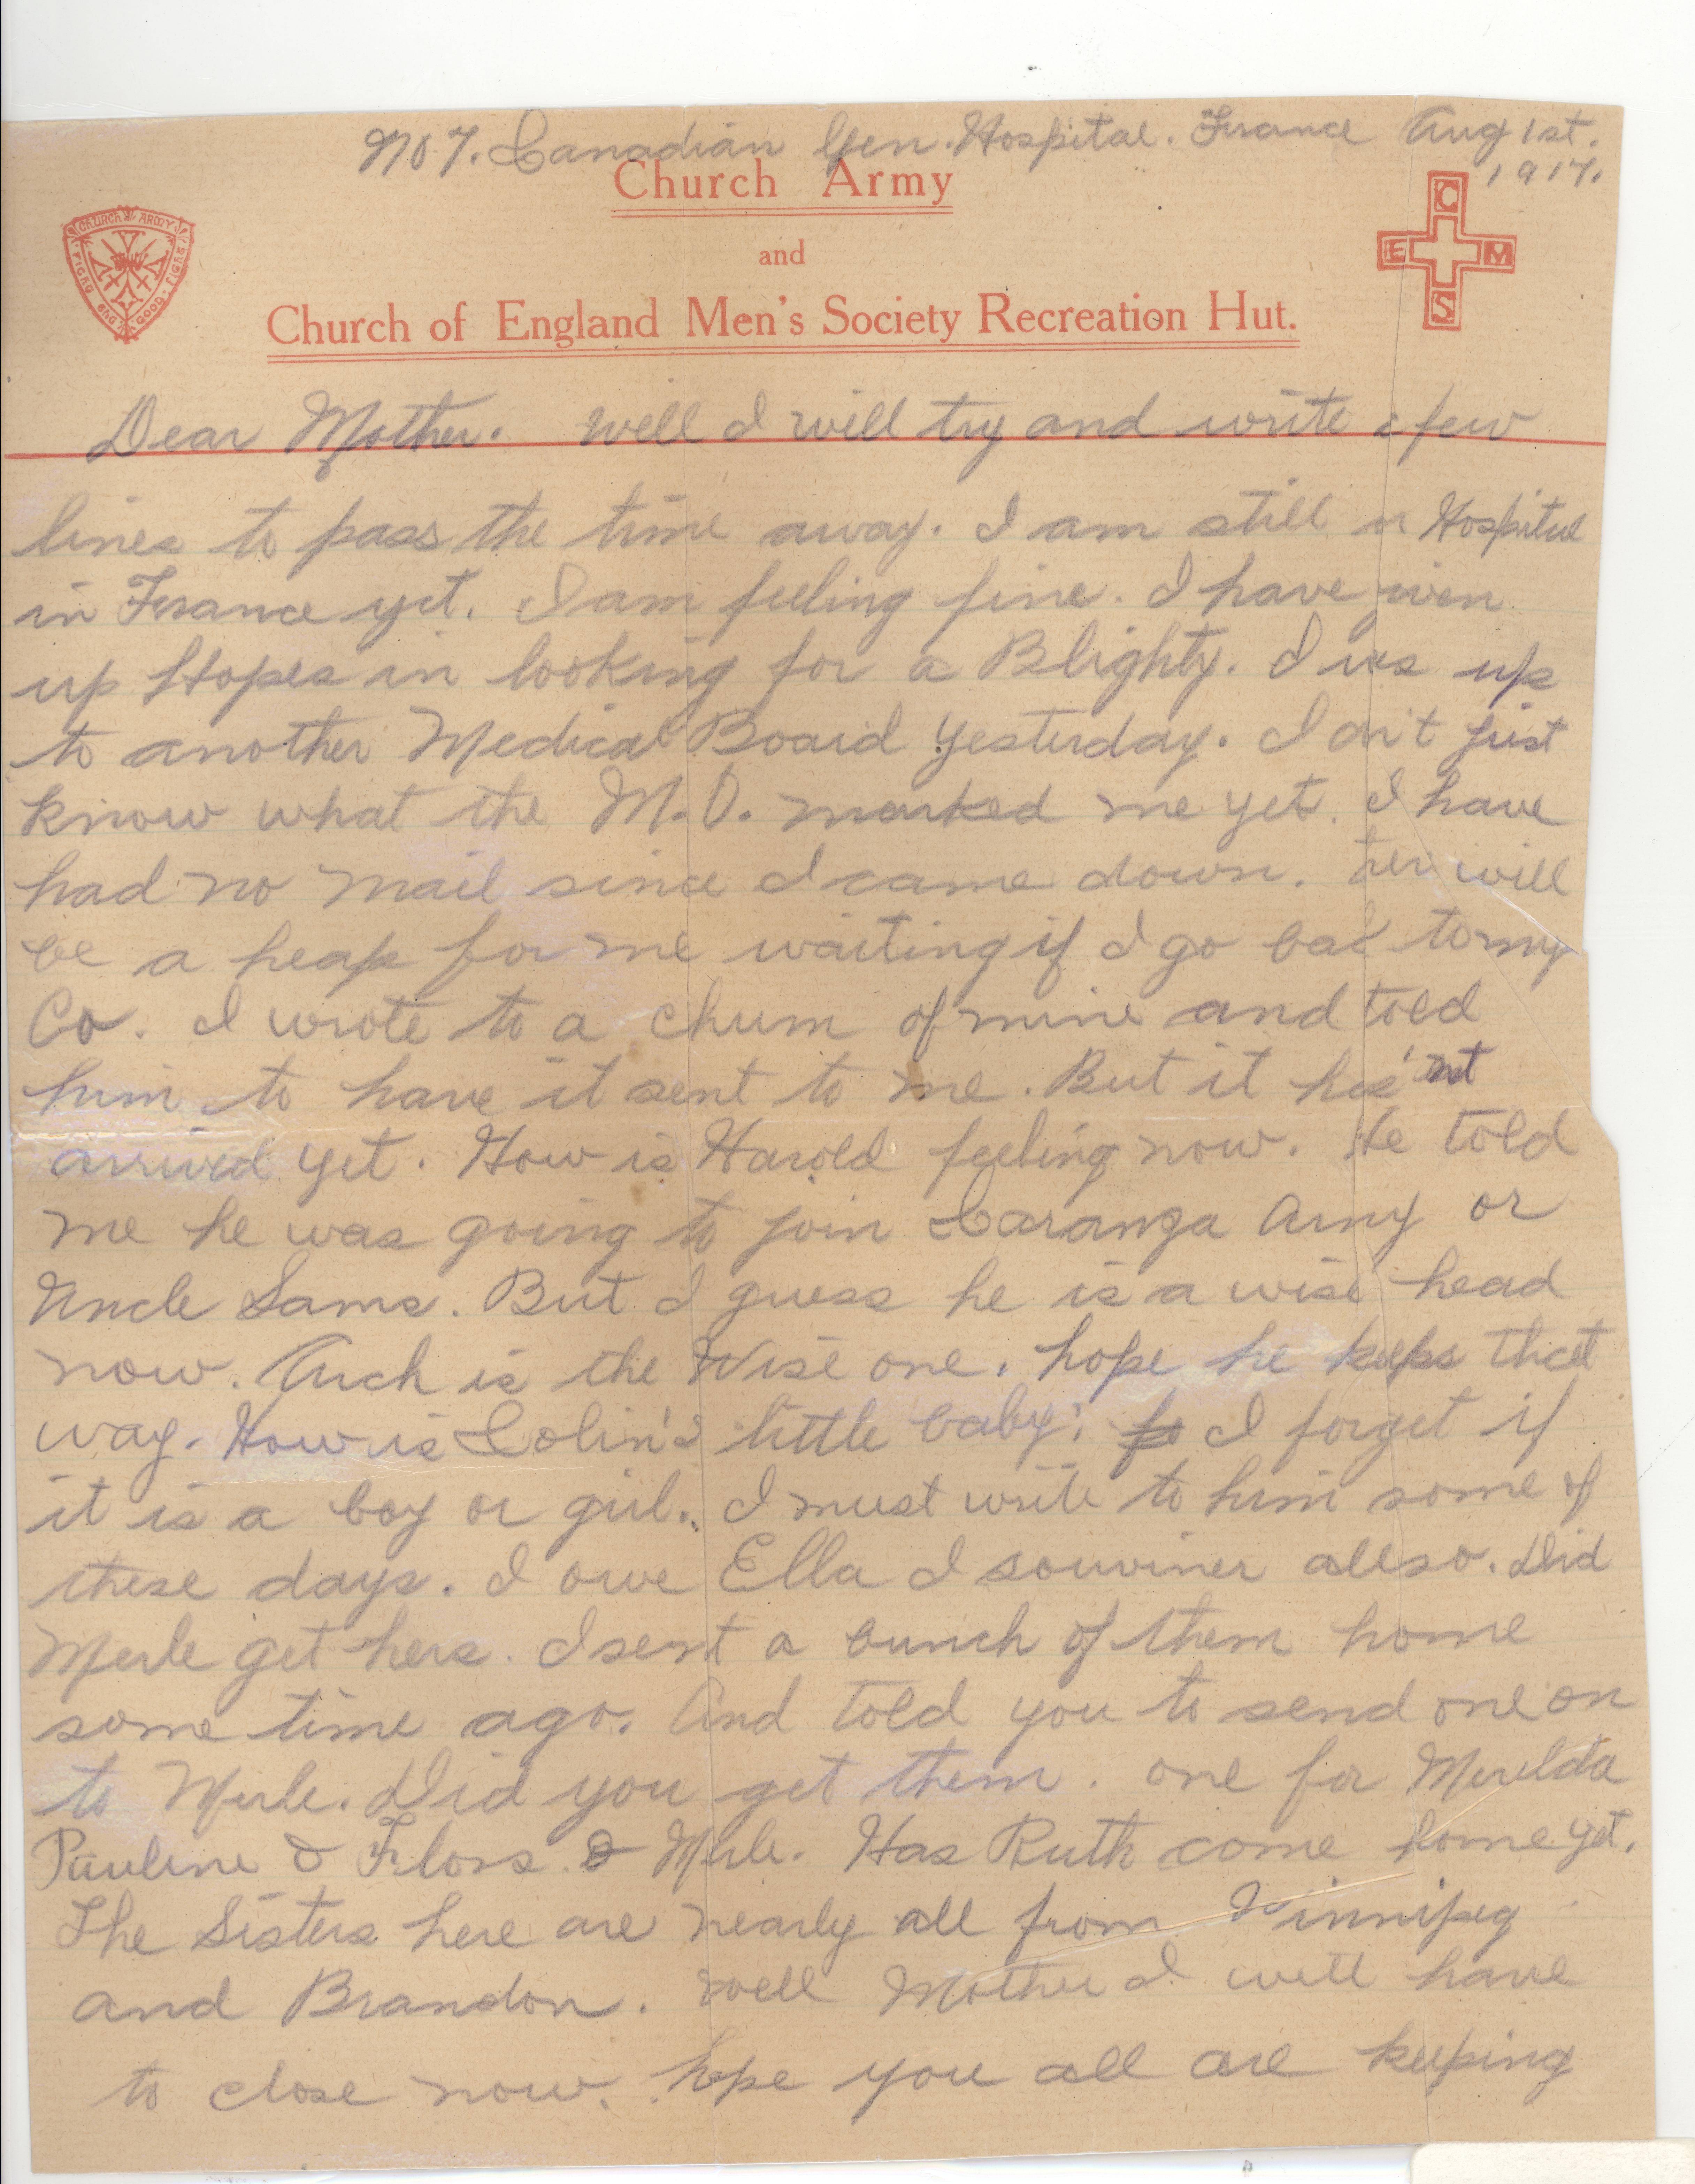 No 7. Canadian Gen. Hospital. France Aug 1st.
1917.
Church Army
and
Church of England Men's Society Recreation Hut.
CHURCH ARMY
FIGHT THE GOOD FIGHT
C
E M
S
Dear Mother. Well I will try and write a few
lines to pass the time away. I am still in Hospital
in France yet. I am feeling fine. I have given
up Hopes in looking for a Blighty. I was up
to another Medical Board yesterday. I don't just
know what the M.O. marked me yet. I have
had no mail since I came down. will
be a heap for me waiting if I go back to my
Co. I wrote to a chum of mine and told
him to have it sent to me. But it has'nt
arrived yet. How is Harold feeling now. He told
me he was going to join Caranza Army or
Uncle Sams. But I guess he is a wise head
now. Arch is the Wise one. hope he keeps that
way. How is Colin's little baby; I forget if
it is a boy or girl. I must write to him some of
these days. I owe Ella I souviner allso. Did
Merle get hers. I sent a bunch of them home
some time ago. And told you to send one on
to Merle. Did you get them. one for Merelda
Pauline & Flors. & Merle. Has Ruth come home yet.
The Sisters here are nearly all from Winnipeg
and Brandon. Well Mother I will have
to close now. hope you all are keeping